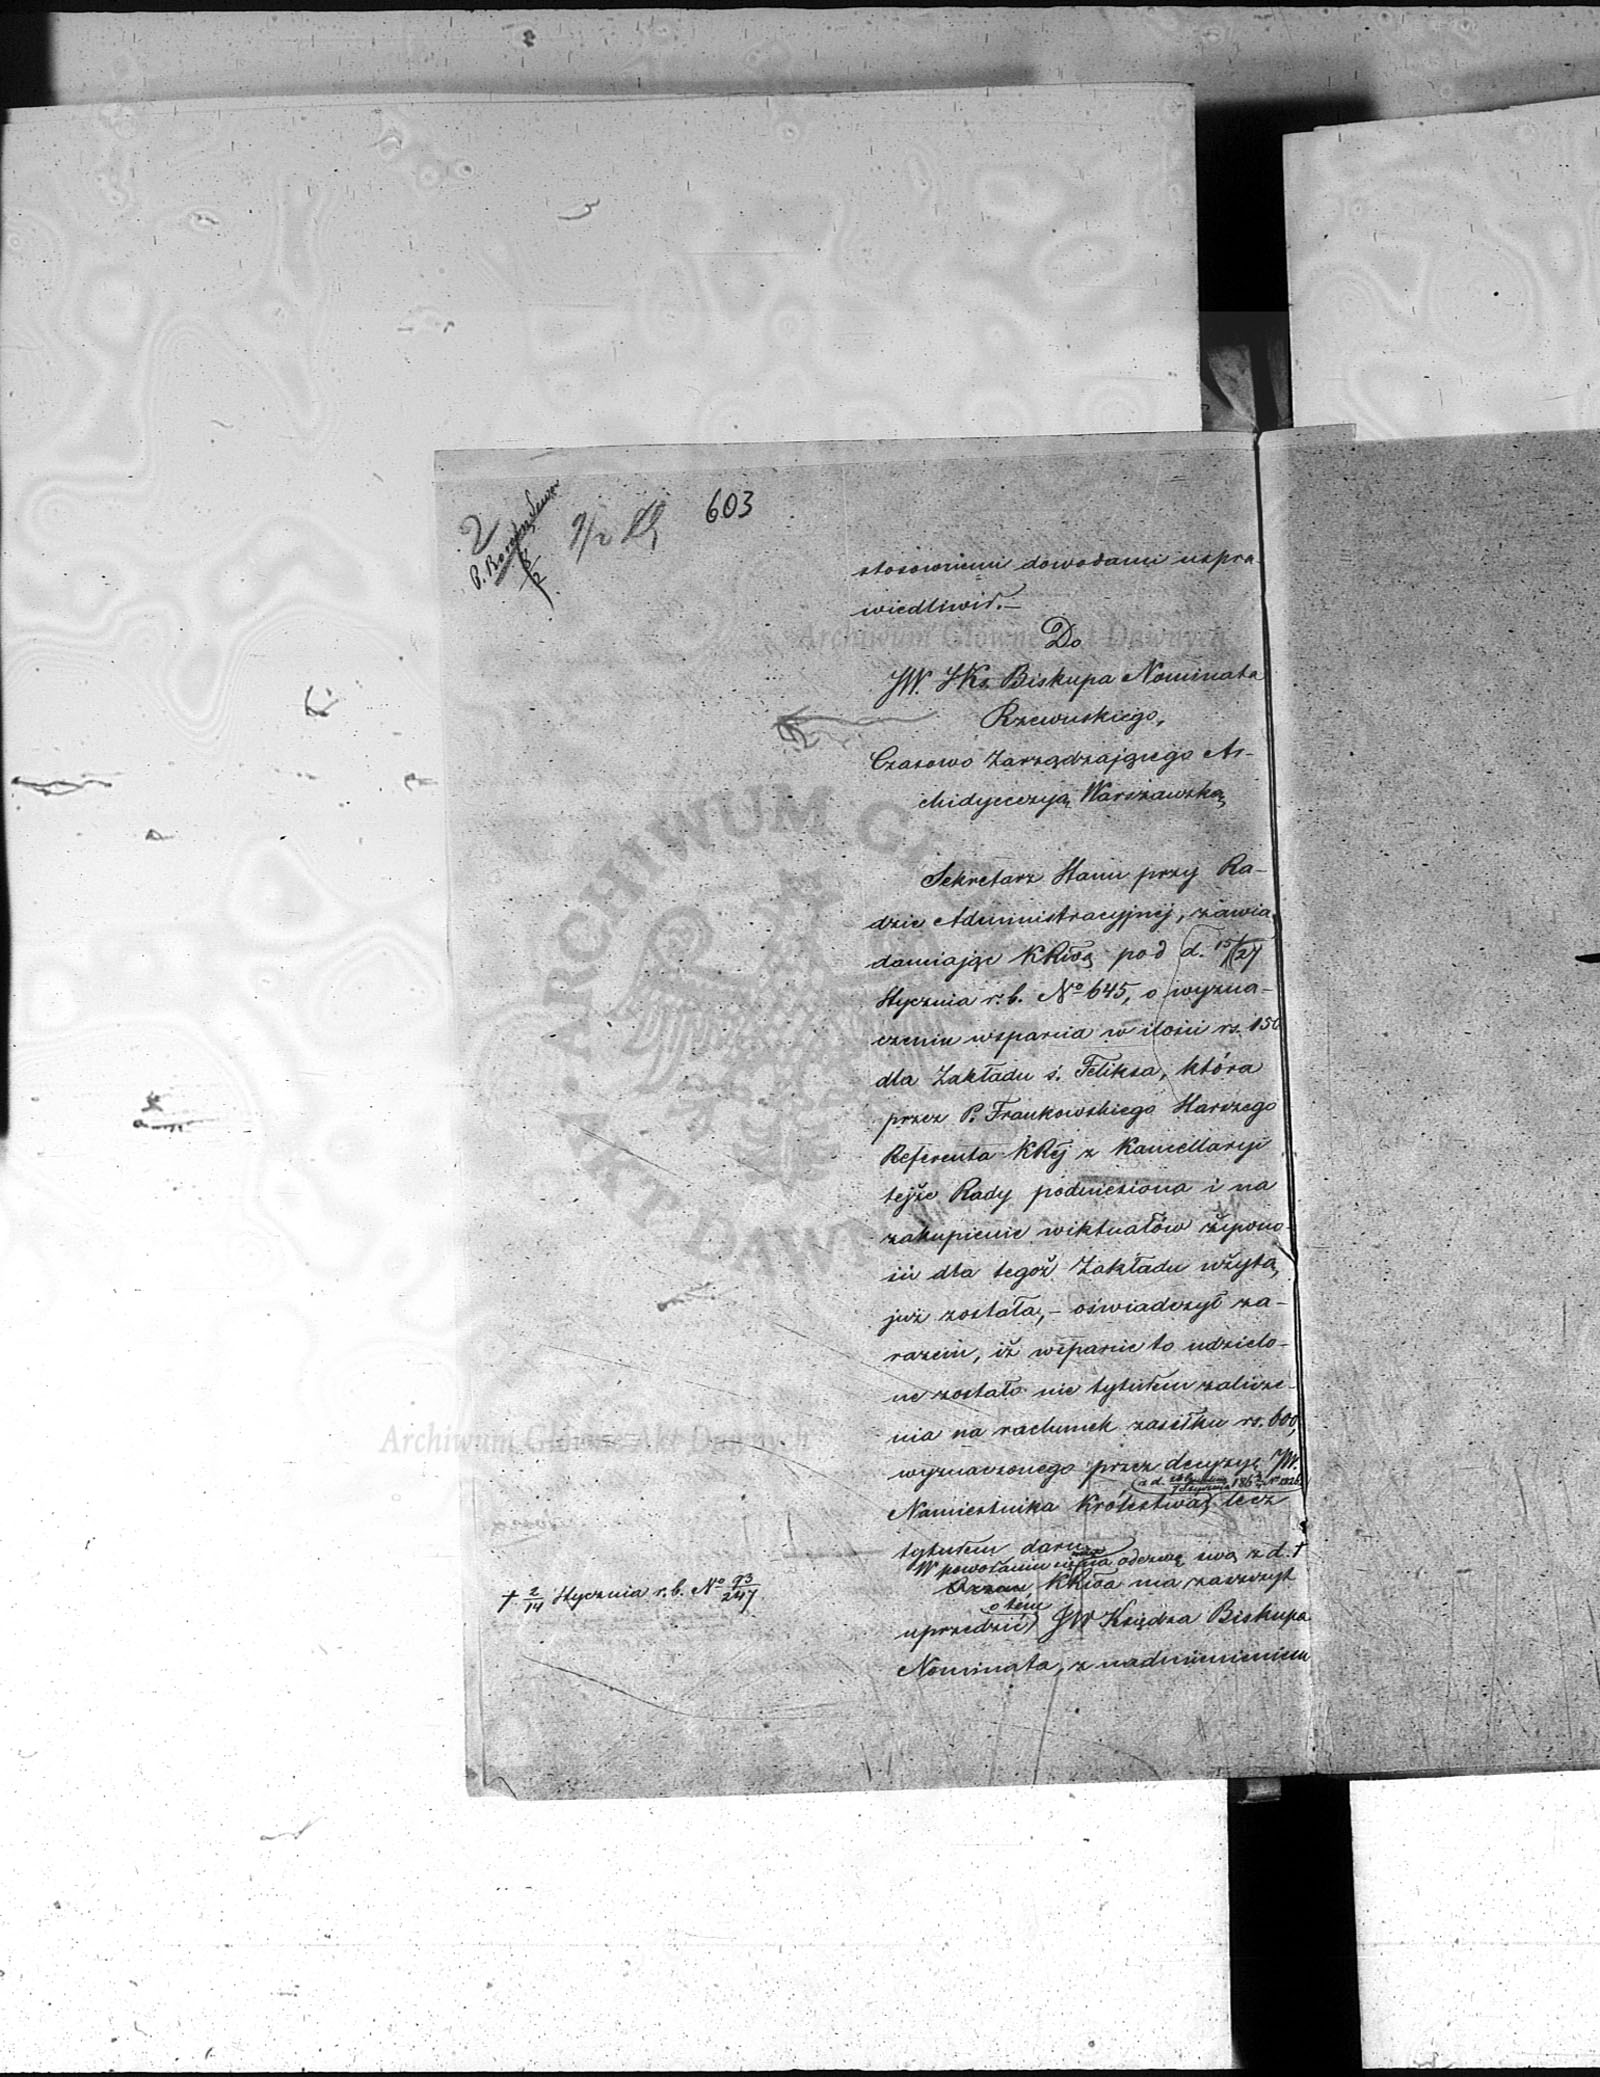 2
P.
8/2
603
stosownemi dowodami uspra
wiedliwić.—
Do
JW. JKs. Biskupa Nominata
Rzewuskiego,
Czasowo Zarządzającego Ar-
chidyecezyą Warszawską
Sekretarz Stanu przy Ra-
dzie Administracyjnej, zawia
damiając KRwą pod d. 15/27
Stycznia r. b. No 645, o wyzna-
czeniu wsparcia w ilości rs. 150
dla Zakładu ś. Feliksa, która
przez P. Frankowskiego Starszego
Referenta KRej z Kancellaryi
tejże Rady podniesiona i na
zakupienie wiktuałów żywno-
ści dla tegoż Zakładu użytą
już została,- oświadczył za-
razem, iż wsparcie to udzielo-
ne zostało nie tytułem zalicze-
nia na rachunek zasiłku rs. 600,
wyznaczonego przez decyzyę JW.
Namiestnika Królestwa, lecz
tytułem daru
W powołaniu odezwę swą z d. †
KRwa ma zaszczyt
o tem
uprzedzić JW Księdza Biskupa
Nominata, z nadmienieniem
† 2/14 Stycznia r. b. No 93/247
Archiwum Główne Akt Dawnych
Archiwum Główne Akt Dawnych